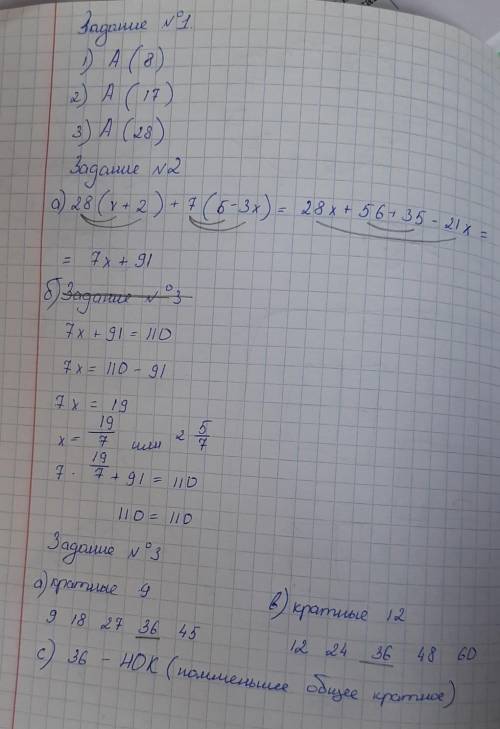 Задание №1.
1) А (8)
2) А (17)
3) А (28)
Задание №2
а) 28(х + 2) + 7(5 - 3х) = 28х + 56 + 35 - 21х =
= 7х + 91
б) Задание №3
7х + 91 = 110
7х = 110 - 91
7х = 19
х = 19/7 или 2 5/7
7 · 19/7 + 91 = 110
110 = 110
Задание №3
а) кратные 9
в) кратные 12
9 18 27 36 45
12 24 36 48 60
с) 36 - НОК (наименьшее общее кратное)